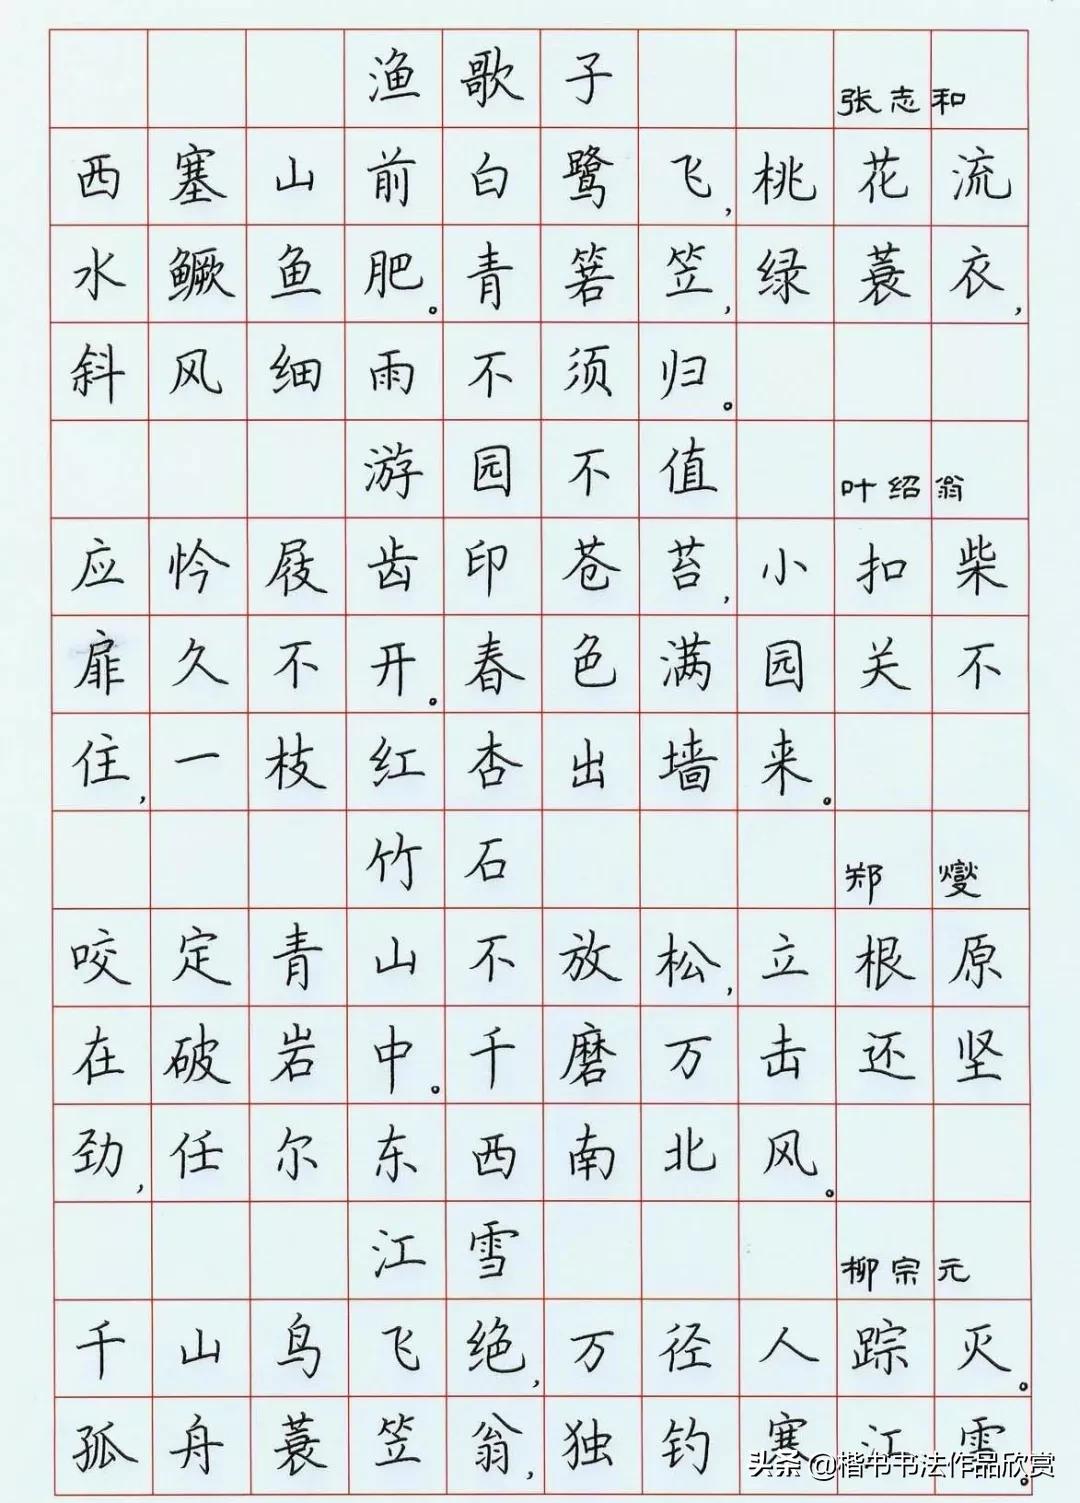 渔歌子 张志和
西塞山前白鹭飞,桃花流
水鳜鱼肥。青箬笠,绿蓑衣,
斜风细雨不须归。
游园不值 叶绍翁
应怜屐齿印苍苔,小扣柴
扉久不开。春色满园关不
住,一枝红杏出墙来。
竹石 郑燮
咬定青山不放松,立根原
在破岩中。千磨万击还坚
劲,任尔东西南北风。
江雪 柳宗元
千山鸟飞绝,万径人踪灭。
孤舟蓑笠翁,独钓寒江雪。
头条 @楷书书法作品欣赏